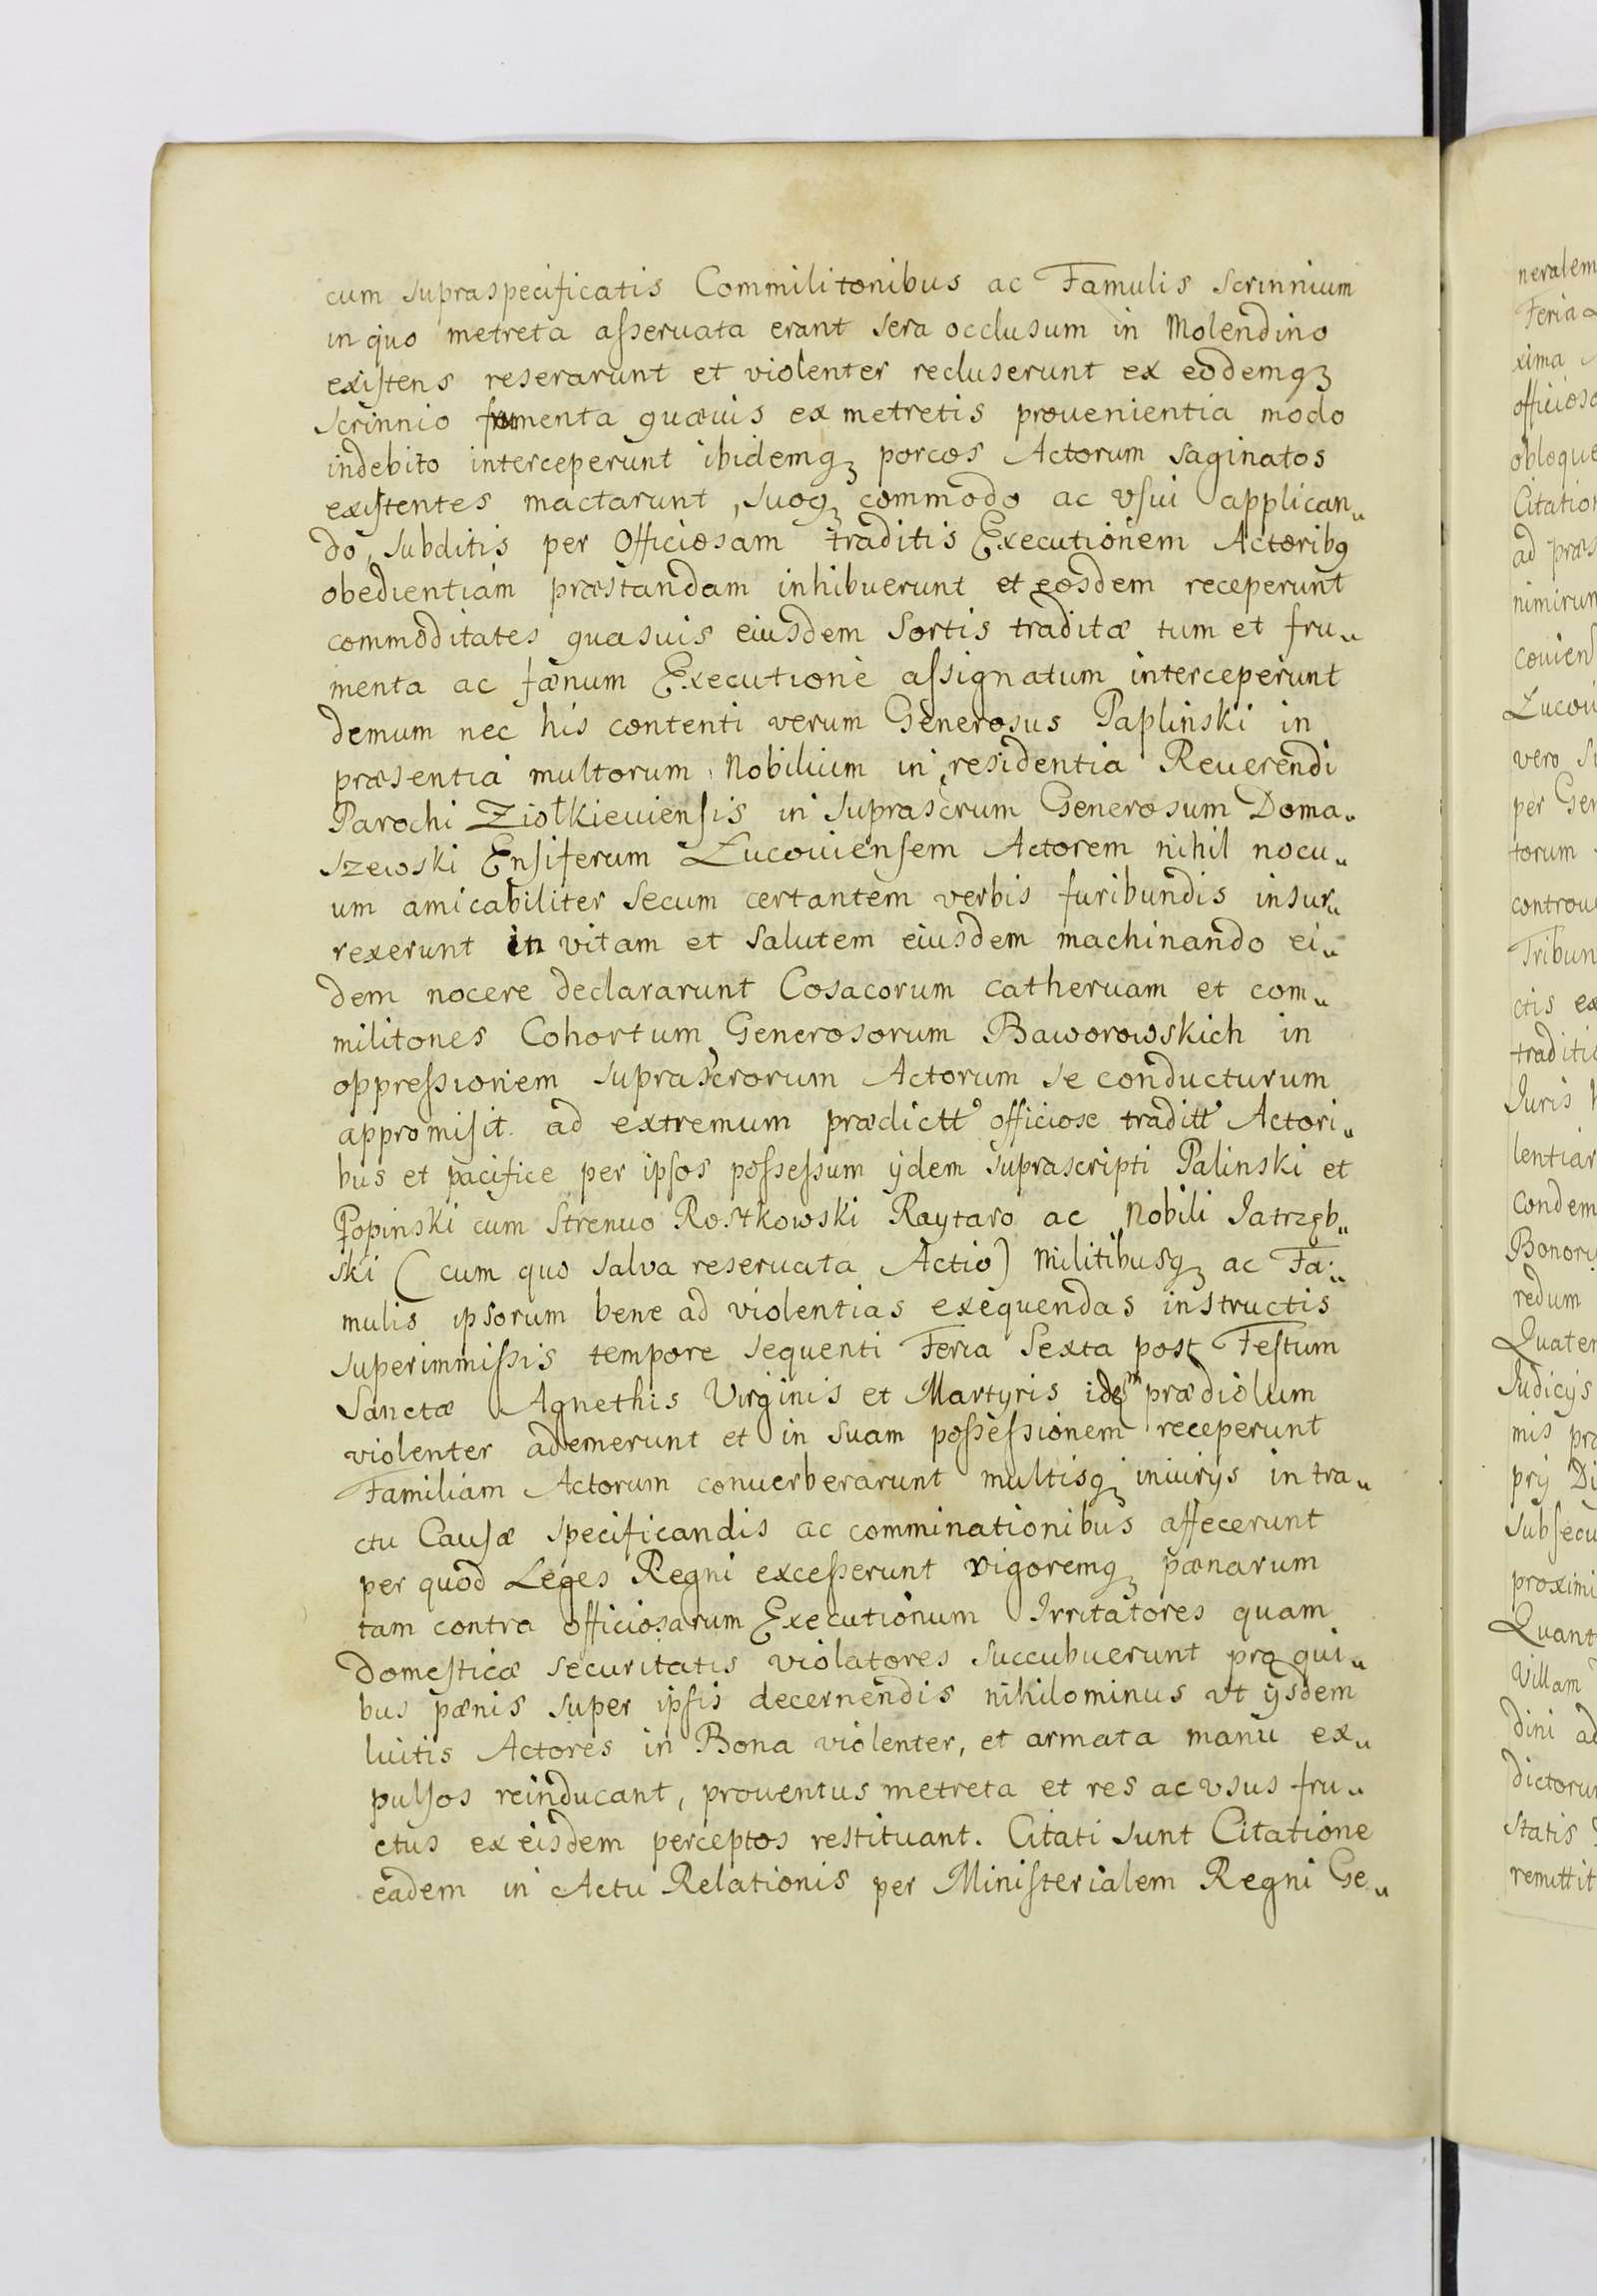 cum supraspecificatis Commilitonibus ac Famulis scrinnium
in quo metreta asseruata erant sera occlusum in Molendino
existens reserarunt et violenter recluserunt ex eodemq₃
scrinnio frumenta quævis ex metretis prouenientia modo
indebito interceperunt ibidemq₃ porcos Actorum saginatos
existentes mactarunt, suoq₃ commodo ac vsui applican„
do, subditis per Officiosam traditis Executionem Actorib9
obedientiam præstandam inhibuerunt et eosdem receperunt
commoditates quasuis eiusdem Sortis traditæ tum et fru„
menta ac fænum Executione assignatum interceperunt
demum nec his contenti verum Generosus Paplinski in
præsentia multorum Nobilium in residentia Reuerendi
Parochi Ziołkieuiensis in suprascrum Generosum Doma„
szewski Ensiferum Lucouiensem Actorem nihil nocu„
um amicabiliter secum certantem verbis furibundis insur„
rexerunt in vitam et salutem eiusdem machinando ei„
dem nocere declararunt Cosacorum catheruam et com„
militones Cohortum Generosorum Baworowskich in
oppressionem suprascrorum Actorum se conducturum
appromisit. ad extremum prædictt9 officiose traditt9 Actori„
bus et pacifice per ipsos possessum ijdem suprascripti Palinski et
Popinski cum Strenuo Rostkowski Raytaro ac Nobili Jatrzęb„
ski (cum quo salva reseruata Actio) Militibusq₃ ac Fa„
mulis ipsorum bene ad violentias exequendas instructis
superimmissis tempore sequenti Feria Sexta post Festum
Sanctæ Agnethis Virginis et Martyris idem prædiolum
violenter ademerunt et in suam possessionem receperunt
Familiam Actorum conuerberarunt multisq₃ iniurijs in tra„
ctu Causæ specificandis ac comminationibus affecerunt
per quod Leges Regni excesserunt vigoremq₃ pænarum
tam contra officiosarum Executionum Irritatores quam
domesticæ securitatis violatores succubuerunt pro qui„
bus pænis super ipsis decernendis nihilominus vt ijsdem
luitis Actores in Bona violenter, et armata manu ex„
pulsos reinducant, prouentus metreta et res ac vsus fru„
ctus ex eisdem perceptos restituant. Citati sunt Citatione
eadem in Actu Relationis per Ministerialem Regni Ge„
neralem
Feria
xima
officiose
obloque
Citation
ad præs
nimirum
couiens
Lucoui
vero
per Gen
torum
controu
Tribun
ctis ex
traditi
Juris
lentiar
Condem
Bonoru
redum
Quaten
Judicijs
mis præ
prij Di
subsecu
proximi
Quant
Villam
dini ad
dictorum
statis
remittit